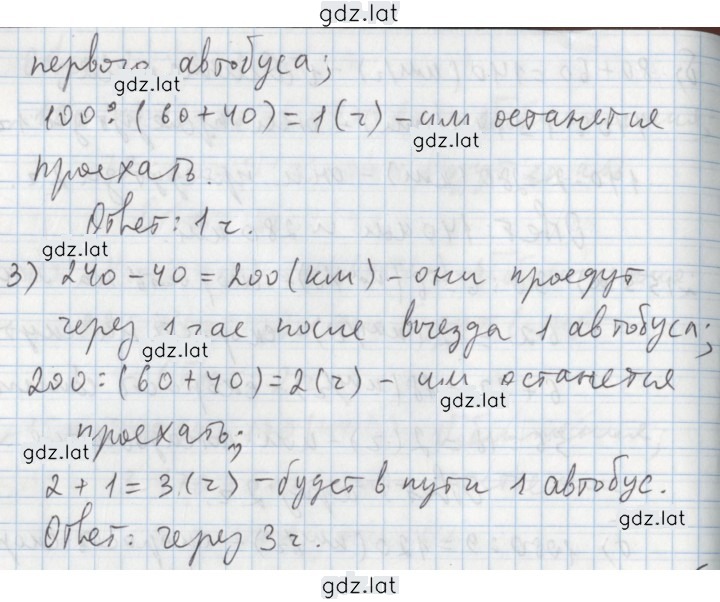 gdz.lat
первого автобуса;
gdz.lat
100 : (60+40) = 1 (ч) – им останется
gdz.lat
проехать.
Ответ: 1 ч.
gdz.lat
3) 240 – 40 = 200 (км) – они проедут
через 1 час после выезда 1 автобуса;
gdz.lat
200 : (60+40) = 2 (ч) – им останется
gdz.lat
проехать;
gdz.lat
2 + 1 = 3 (ч) – будет в пути 1 автобус.
gdz.lat
Ответ: через 3 ч.
gdz.lat